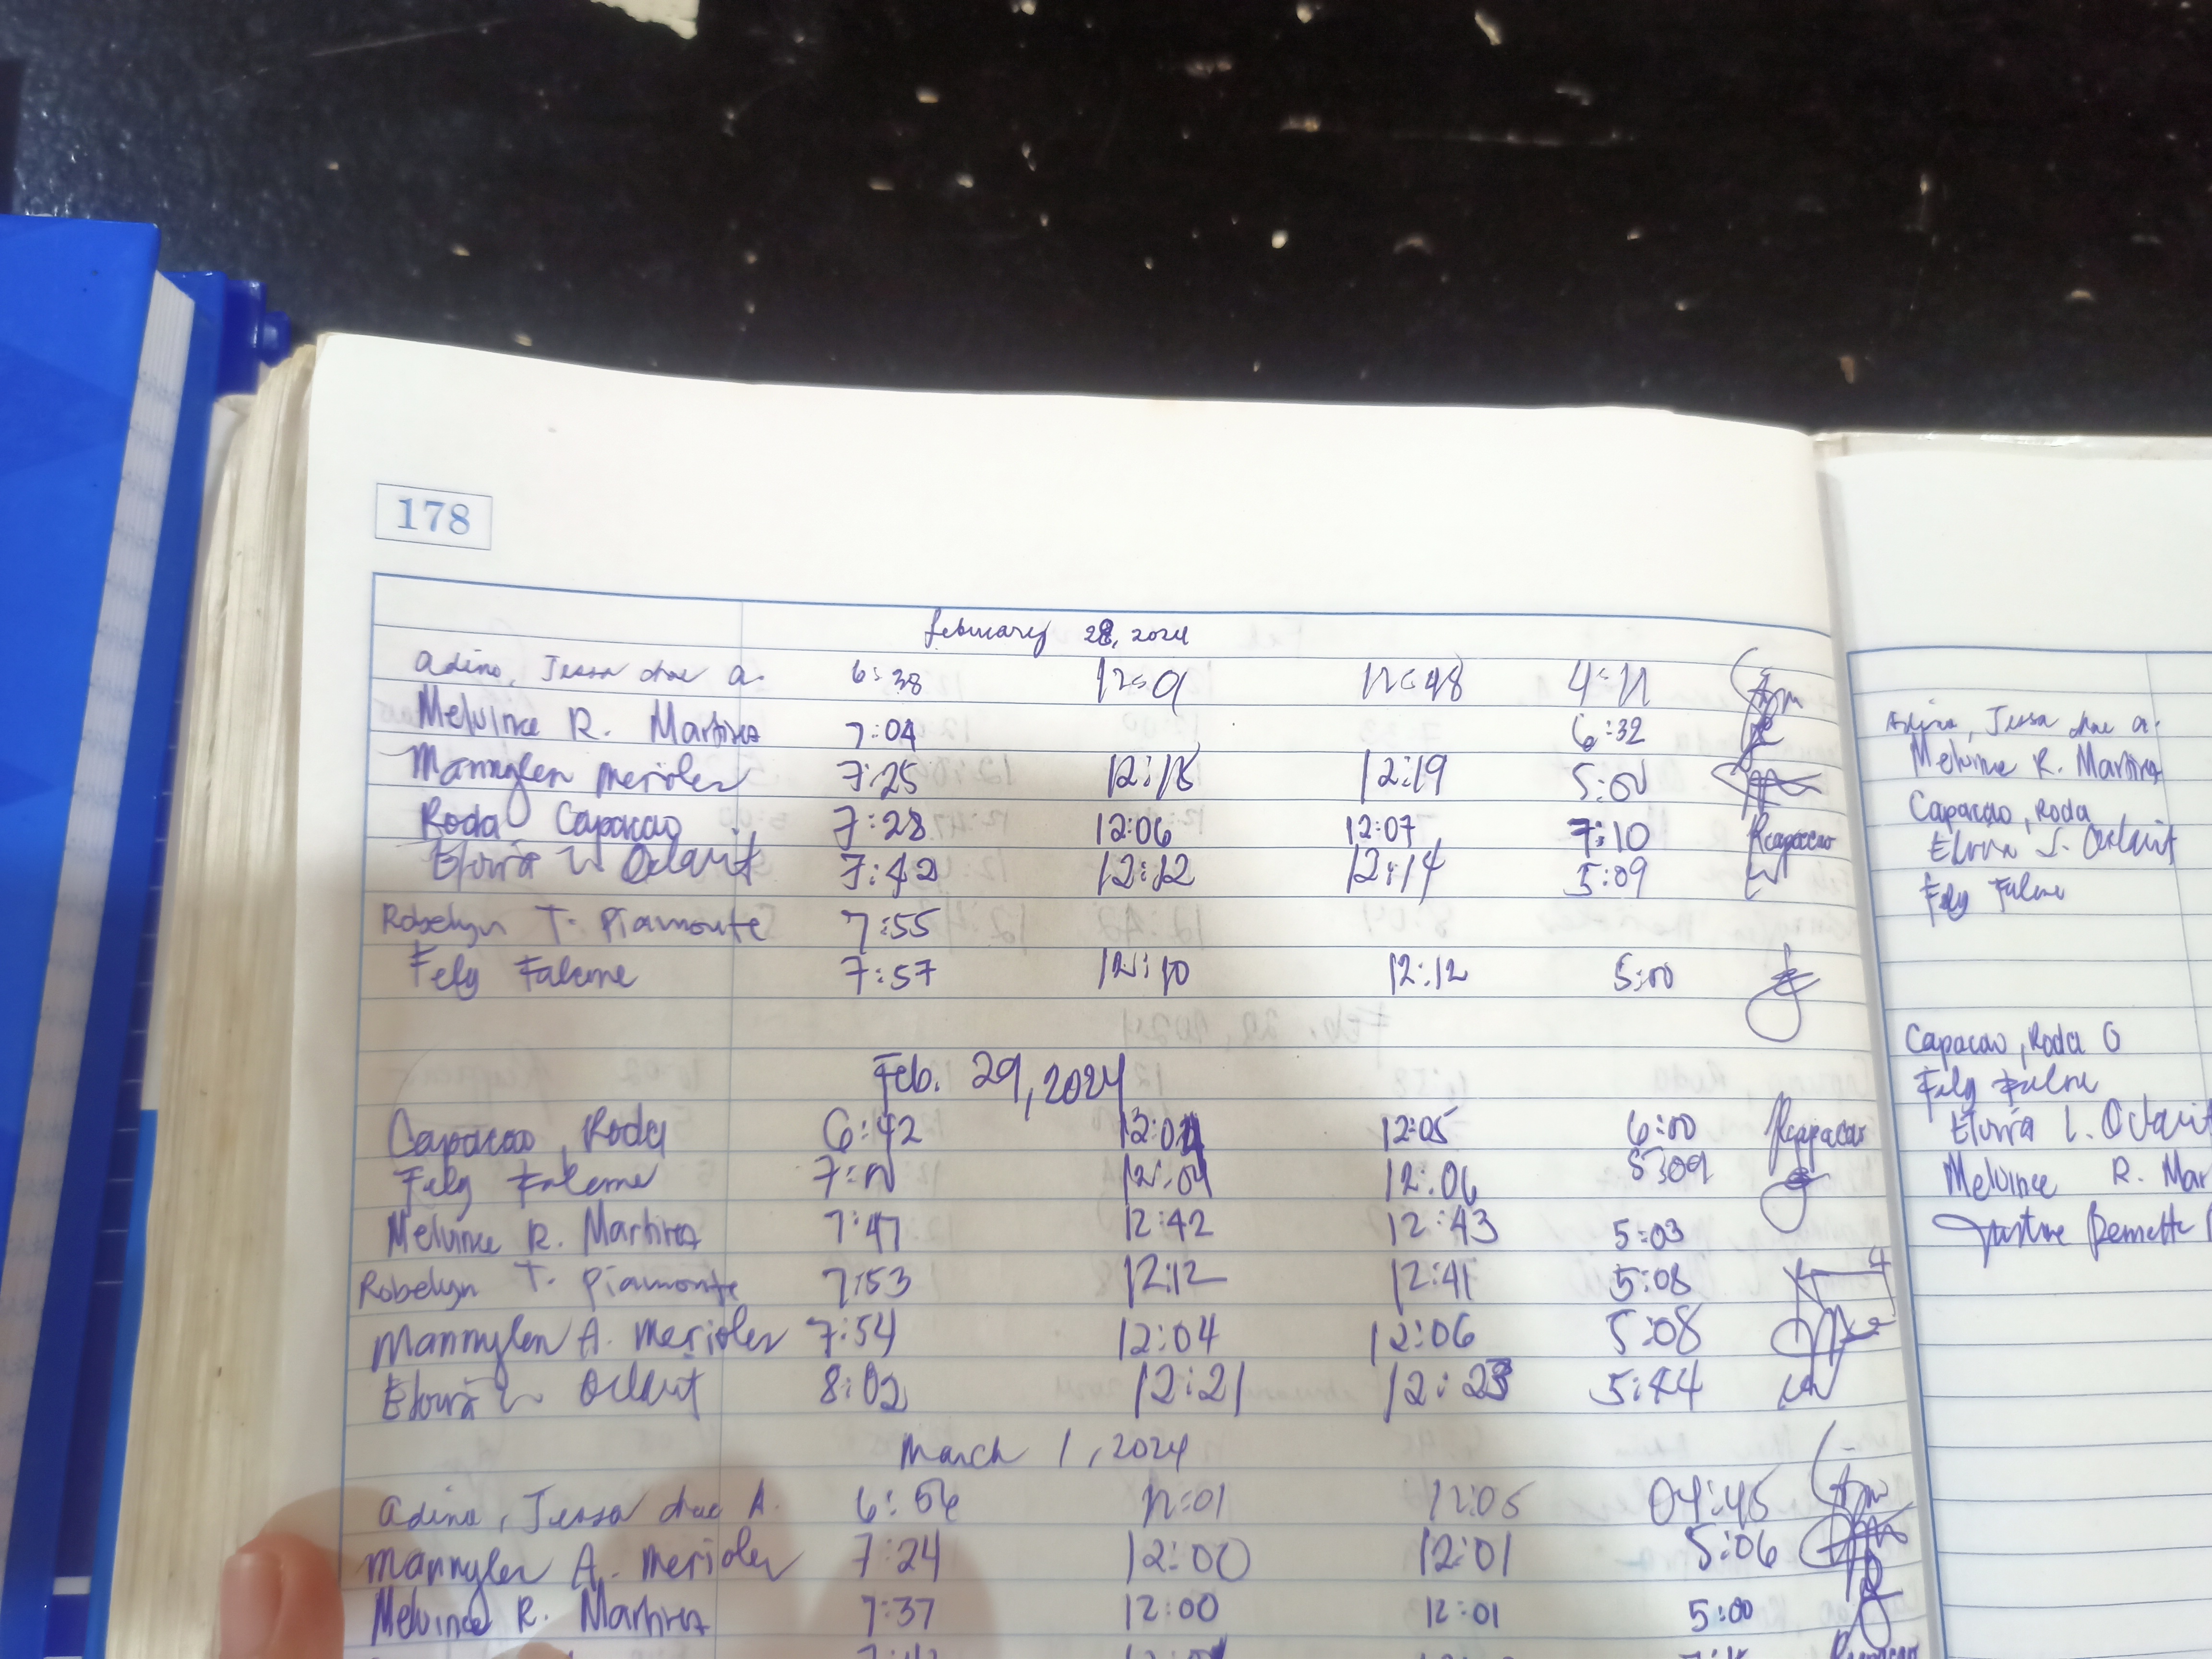 178
february 28, 2024
Adino, Jessa Mae A. 6:38 12:01 12:48 4:11
Melvince R. Martirez 7:04 6:32
Mannylen Merioles 7:25 12:18 12:19 5:00
Roda Capacao 7:28 12:06 12:07 7:10 Rcapacao
Elovra Oclarit 7:42 12:12 12:14 5:09
Robelyn T. Piamonte 7:55
Fely Faleme 7:57 12:10 12:12 5:00
Feb. 29, 2024
Capacao, Roda 6:42 12:04 12:05 6:00 Rcapacao
Fely Faleme 12:04 12:06 5:09
Melvince R. Martirez 7:47 12:42 12:43 5:03
Robelyn T. Piamonte 7:53 12:12 12:41 5:08
Mannylen A. Merioles 7:54 12:04 12:06 5:08
Elovra Oclarit 8:02 12:21 12:23 5:44
March 1, 2024
Adino, Jessa Mae A. 6:56 12:01 12:05 04:45
Mannylen A. Merioles 7:24 12:00 12:01 5:06
Melvince R. Martirez 7:37 12:00 12:01 5:00
Adino, Jessa Mae A.
Melvince R. Martirez
Capacao, Roda
Elovra L. Oclarit
Fely Faleme
Capacao, Roda O
Fely Faleme
Elovra L. Oclarit
Melvince R. Mar